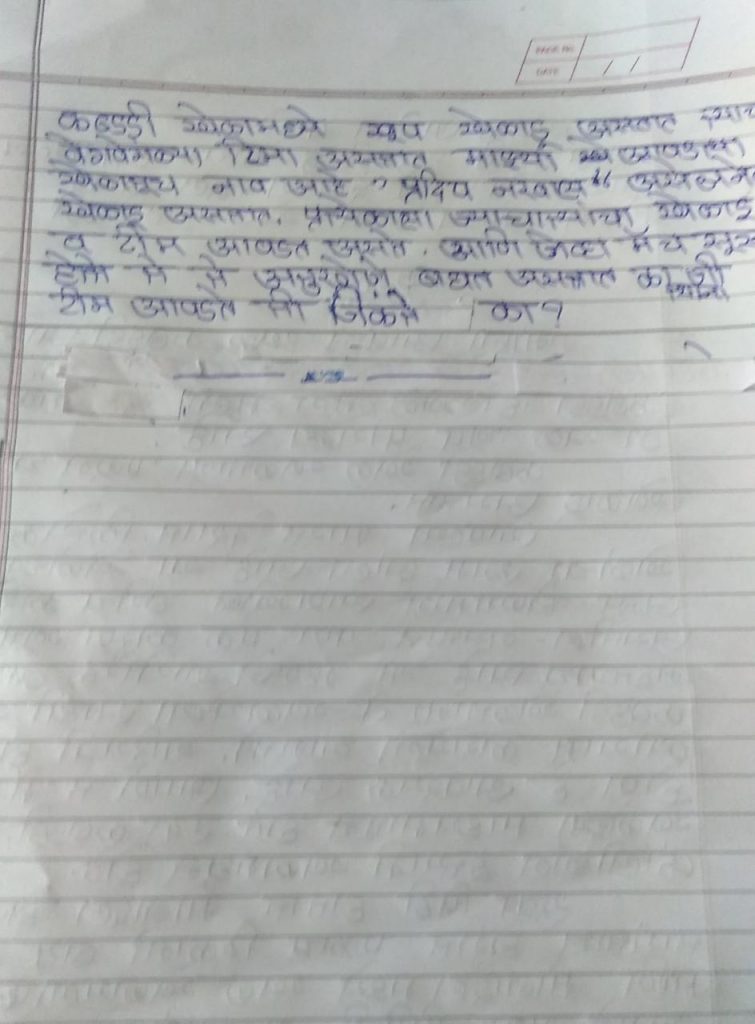 PAGE NO.
DATE / /
कबड्डी खेळामध्ये खुप खेळाडू असतात
वेगवेगळ्या टिमा असतात माझ्या आवडत्या
खेळाडूच नाव आहे " प्रदिप नरवाल "
खेळाडू असतात. प्रत्येकाला ज्याचात्याचा खेळाडू
व टीम आवडत असते. आणि जेव्हा मॅच सुरू
होते ते बघत असतात का जी
टीम आवडते ती जिंकते का?